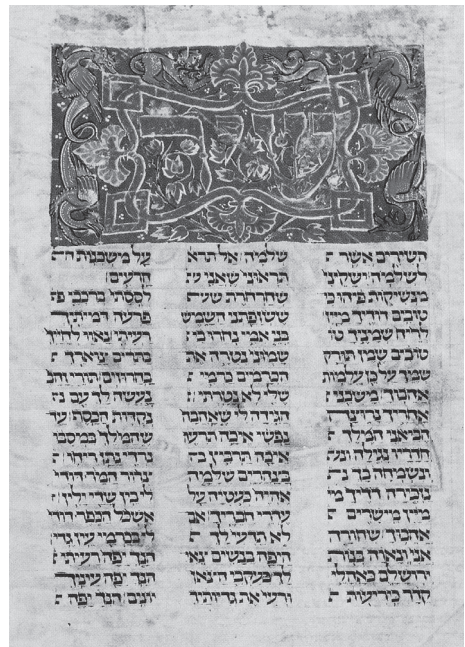 שיר ה
השירים אשר
לשלמה ישקני
מנשיקות פיהו כי
טובים דדיך מיין
לריח שמניך טו
טובים שמן תורק
שמך על כן עלמות
אהבוך משכני
אחריך נרוצה
הביאני המלך
חדריו נגילה ונש
ונשמחה בך נ
נזכירה דדיך מי
מיין מישרים
אהבוך שחורה
אני ונאוה בנות
ירושלם כאהלי
קדר כיריעות
שלמה אל תרא
תראוני שאני ש
שחרחרת שש
ששזפתני השמש
בני אמי נחרו בי
שמוני נטרה את
הכרמים כרמי ש
שלי לא נטרתי
הגידה לי שאהבה
נפשי איכה תרעה
איכה תרביץ ב
בצהרים שלמה
אהיה כעטיה על
עדרי חבריך אם
לא תדעי לך ה
היפה בנשים צאי
לך בעקבי הצאן
ורעי את גדיותיך
על משכנות הר
הרעים
לססתי ברכבי פר
פרעה דמיתיך
רעיתי נאוו לחייך
בתרים צוארך
בחרוזים תורי זהב
נעשה לך עם נק
נקדות הכסף עד
שהמלך במסבו
נרדי נתן ריחו
צרור המר דודי
לי בין שדי ילין
אשכל הכפר דודי
לי בכרמי עין גדי
הנך יפה רעיתי
הנך יפה עיניך
יונים הנך יפה